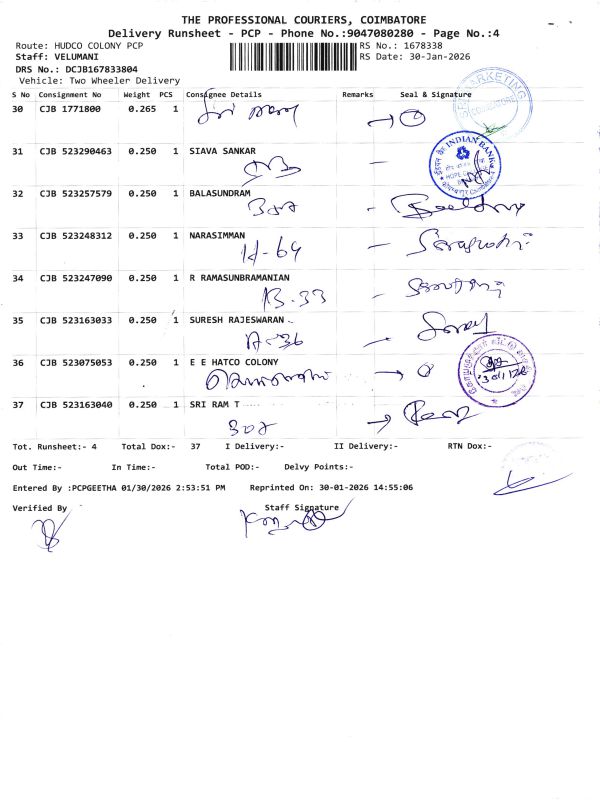 THE PROFESSIONAL COURIERS, COIMBATORE
Delivery Runsheet - PCP - Phone No.:9047080280 - Page No.:4
Route: HUDCO COLONY PCP RS No.: 1678338
Staff: VELUMANI RS Date: 30-Jan-2026
DRS No.: DCJB167833804
Vehicle: Two Wheeler Delivery
S No Consignment No Weight PCS Consignee Details Remarks Seal & Signature
30 CJB 1771800 0.265 1
MARKETING
COIMBATORE
31 CJB 523290463 0.250 1 SIAVA SANKAR
INDIAN BANK
32 CJB 523257579 0.250 1 BALASUNDRAM
302
33 CJB 523248312 0.250 1 NARASIMMAN
H-64
34 CJB 523247090 0.250 1 R RAMASUNBRAMANIAN
B-33
35 CJB 523163033 0.250 1 SURESH RAJESWARAN
A-36
36 CJB 523075053 0.250 1 E E HATCO COLONY
37 CJB 523163040 0.250 1 SRI RAM T
302
Tot. Runsheet:- 4 Total Dox:- 37 I Delivery:- II Delivery:- RTN Dox:-
Out Time:- In Time:- Total POD:- Delvy Points:-
Entered By :PCPGEETHA 01/30/2026 2:53:51 PM Reprinted On: 30-01-2026 14:55:06
Verified By Staff Signature